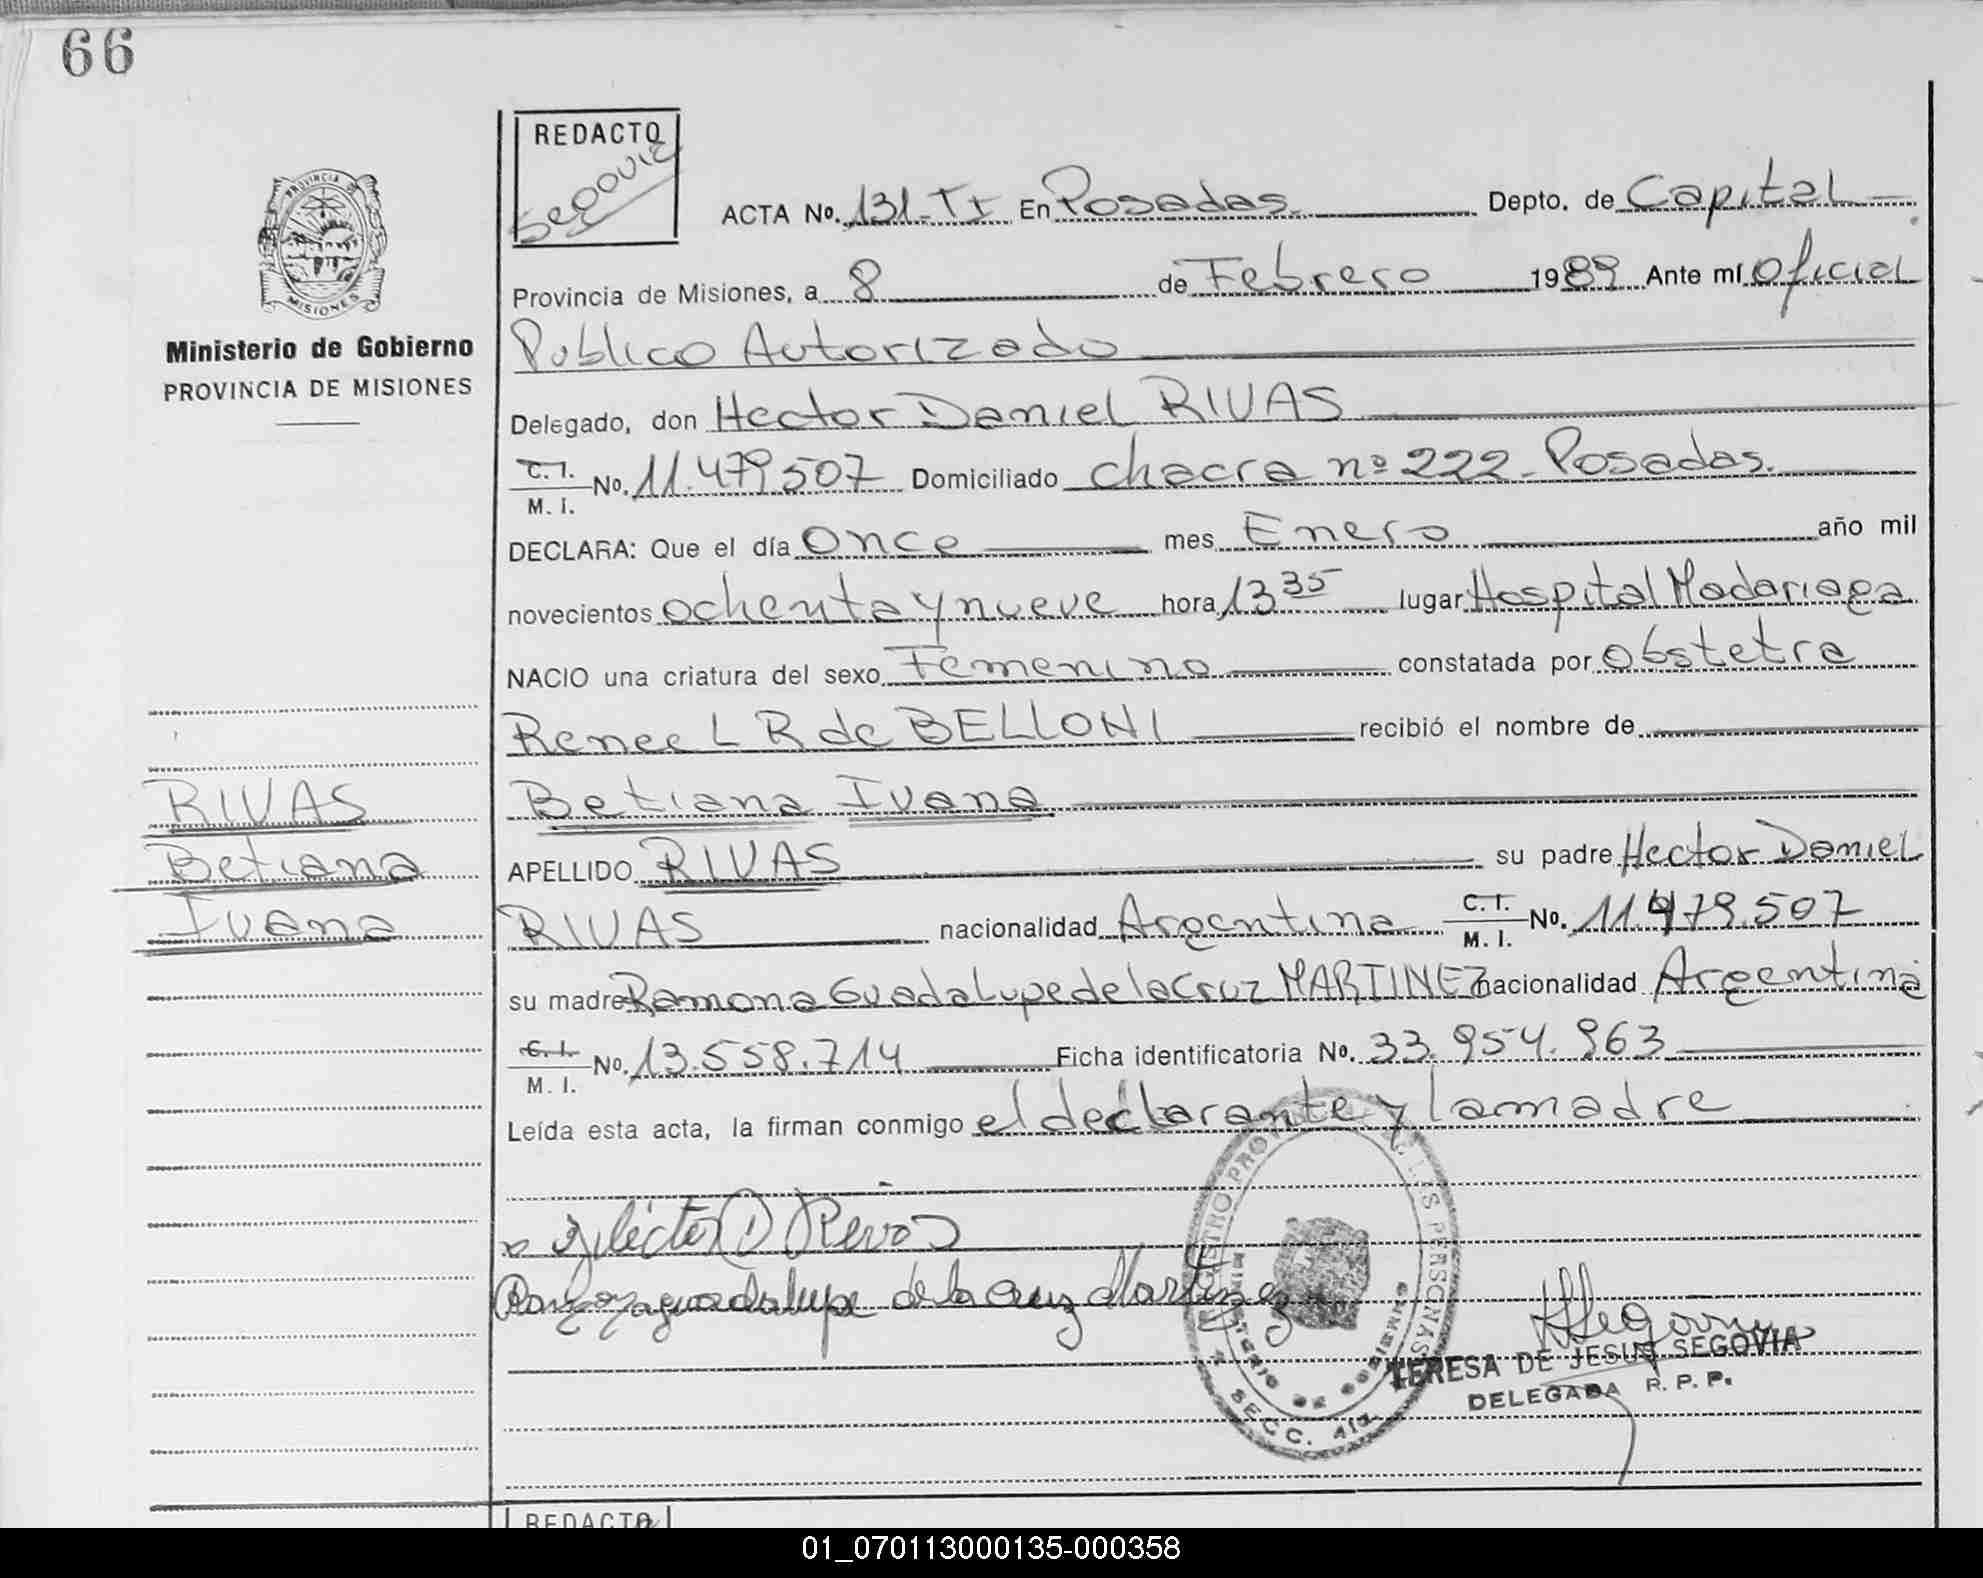 66
REDACTO
Segovia
PROVINCIA DE
MISIONES
Ministerio de Gobierno
PROVINCIA DE MISIONES
ACTA No. 131-TI En Posadas Depto. de Capital
Provincia de Misiones, a 8 de Febrero 1989 Ante mí Oficial
Publico Autorizado
Delegado, don Hector Daniel RIVAS
C. I. M. I. No. 11.479.507 Domiciliado Chacra nº 222 - Posadas.
DECLARA: Que el día Once mes Enero año mil
novecientos ochenta y nueve hora 13 35 lugar Hospital Madariaga
NACIO una criatura del sexo Femenino constatada por Obstetra
Renee L R de BELLONI recibió el nombre de
RIVAS Betiana Ivana
Betiana APELLIDO RIVAS su padre Hector Daniel
Ivana RIVAS nacionalidad Argentina C. I. M. I. No. 11.479.507
su madre Ramona Guadalupe de la Cruz MARTINEZ nacionalidad Argentina
C. I. M. I. No. 13.558.714 Ficha identificatoria No. 33.954.963
Leída esta acta, la firman conmigo el declarante y la madre
x Héctor D Rivas
Ramona guadalupe de la Cruz Martinez
HSegovia
TERESA DE JESUS SEGOVIA
DELEGADA R. P. P.
MINISTERIO DE GOBIERNO
SECC. 4ta
REDACTO
01_070113000135-000358